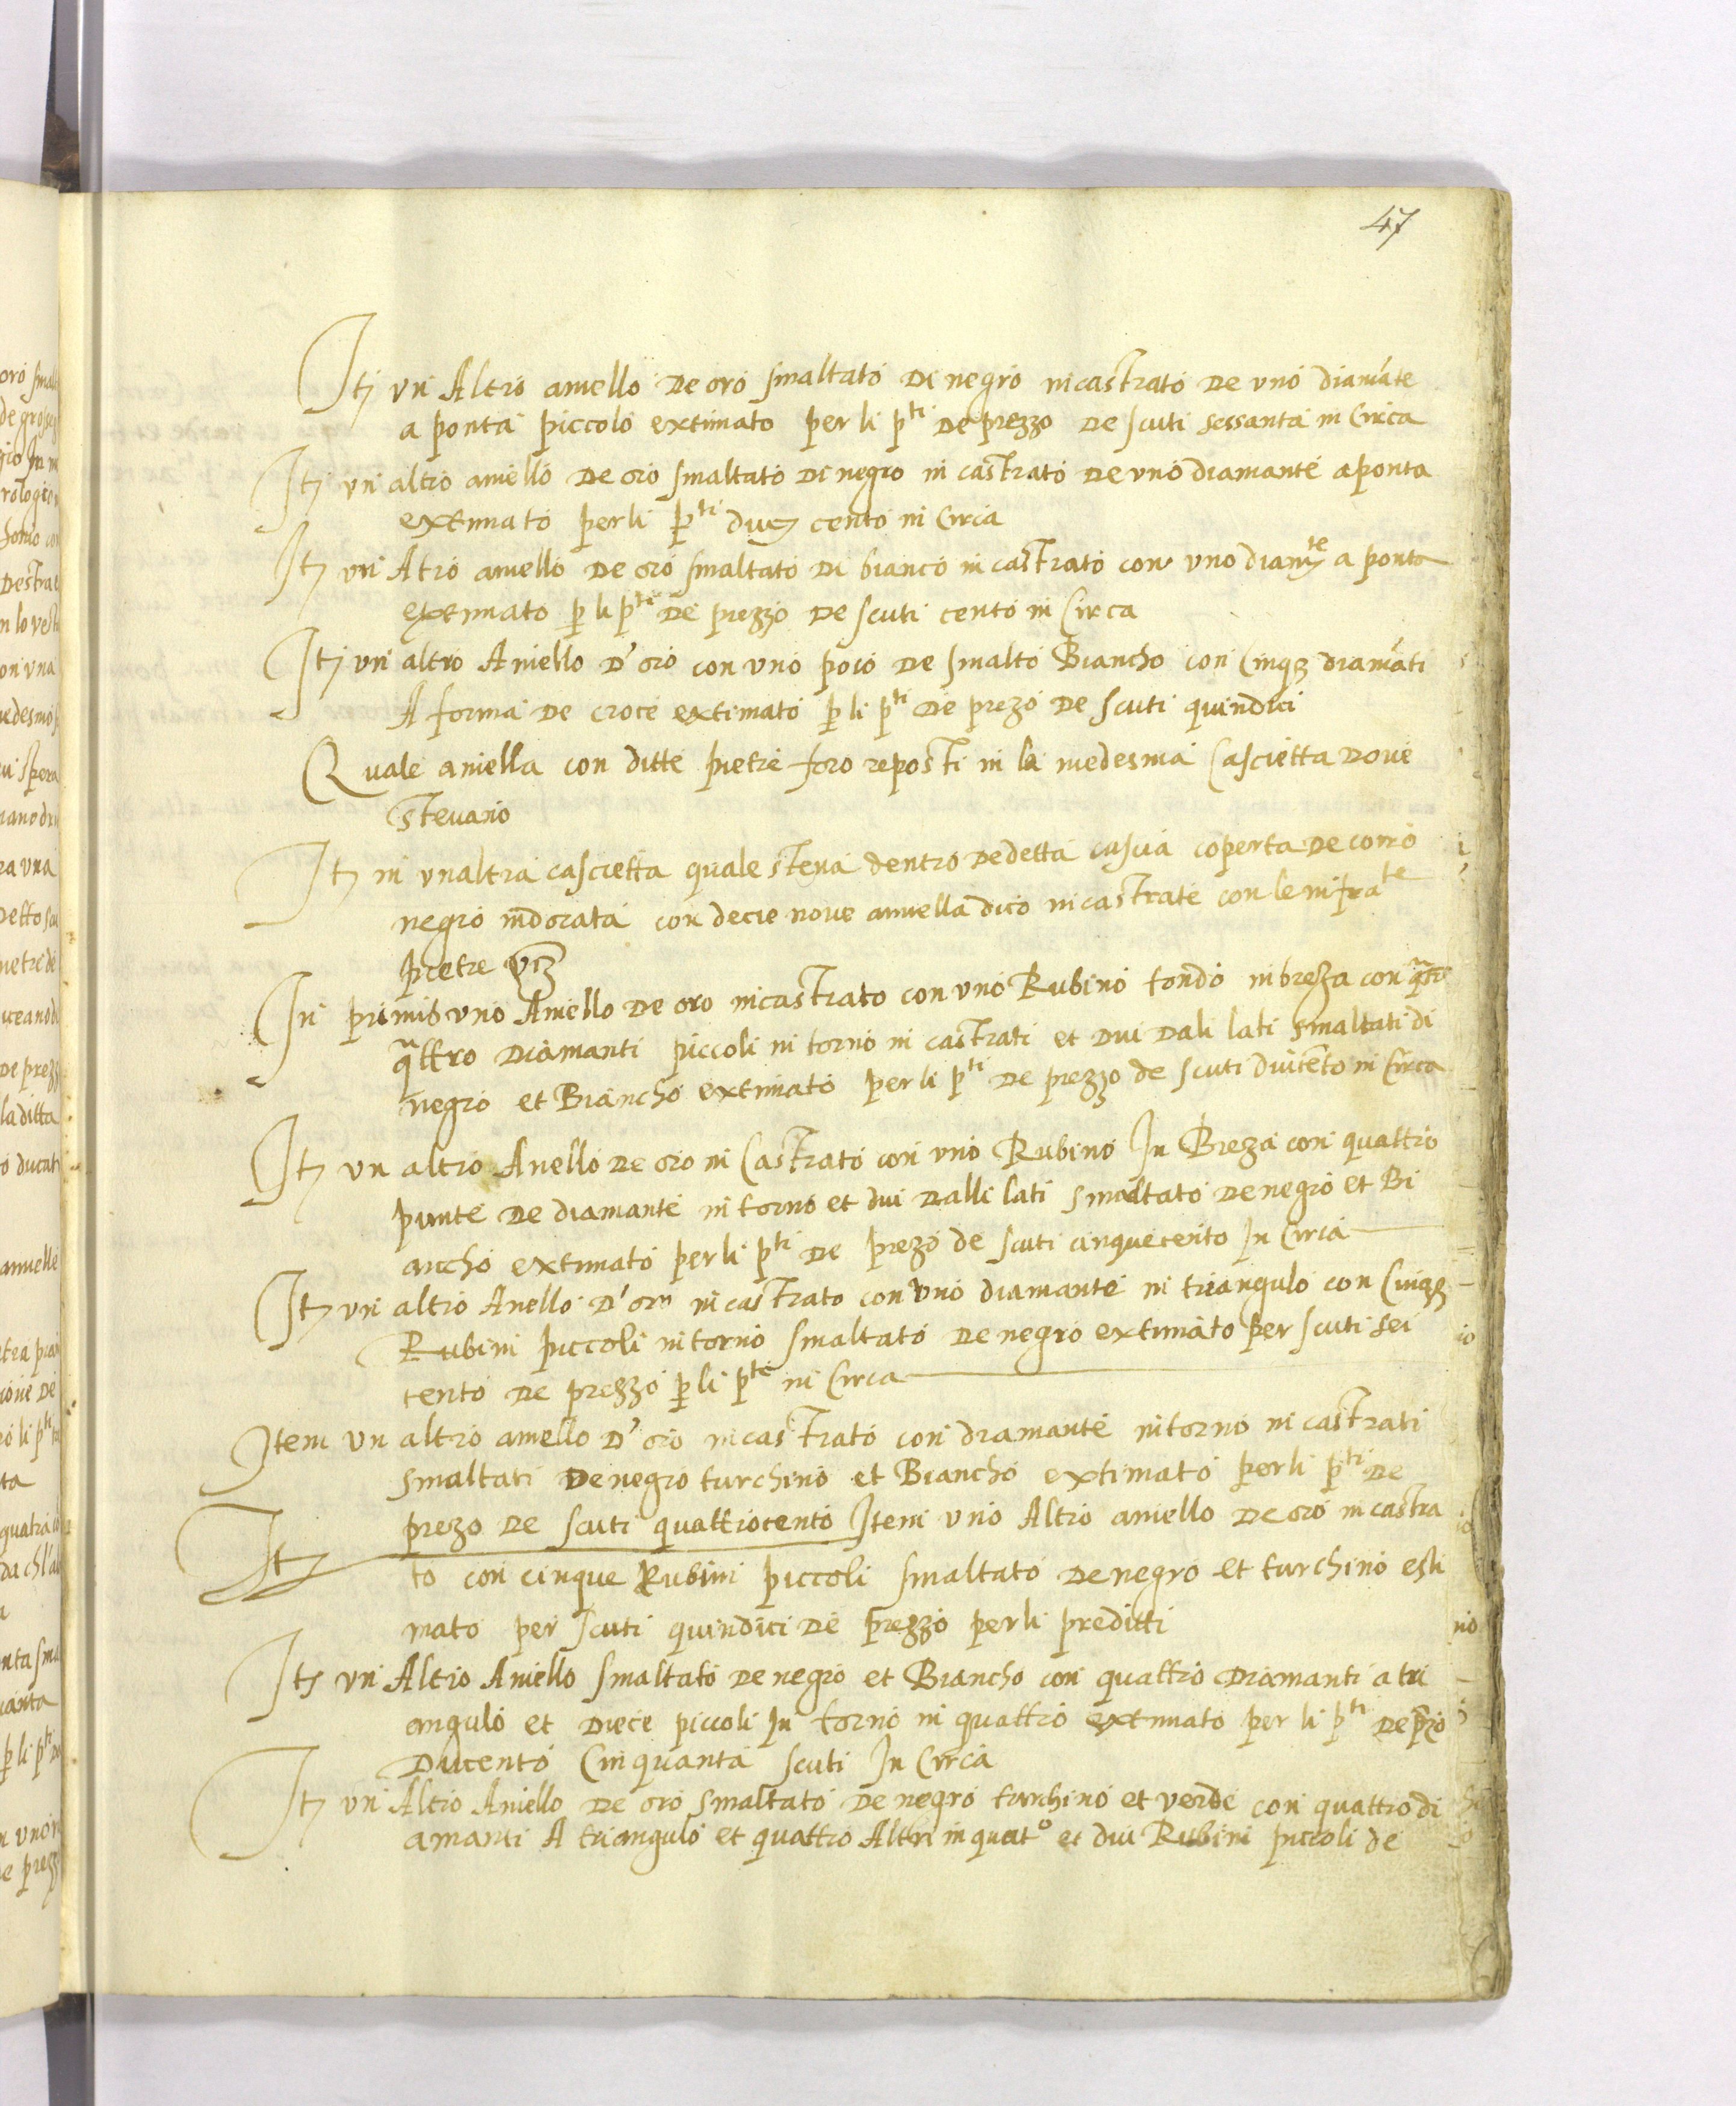 47
Itꝫ un Altro aniello de oro smaltato di negro incastrato de uno diamãte
a ponta piccolo extimato per li p^ti de prezzo de scuti sessanta in Circa
Itꝫ un altro aniello de oro smaltato di negro in castrato de uno diamante aponta
extimato perli p^ti ducẽ cento in Circa
Itꝫ un Atro aniello de oro smaltato di bianco in castrato con uno diam^te a ponta
extimato ꝑ li p^ti de prezzo de scuti cento in Circa
Itꝫ un altro Aniello d'oro con uno poco de smalto Biancho con Cinqꝫ diamãti
A forma de croce extimato ꝑ li p^ti de prezo de scuti quindici
Quale aniella con ditte pietre foro reposti in la medesma Cascietta dove
stevano
Itꝫ in unaltra cascietta quale steva dentro dedetta cascia coperta de corio
negro indorata con decie nove aniella dico incastrate con le infra^te
pietre vꝫ
In primis uno Aniello de oro incastrato con uno Rubino tondo in breza con q̃tro
q̃ttro diamanti piccoli in torno in castrati et dui dali lati smaltati di
negro et Biancho extimato per li p^ti de prezzo de scuti ducẽto in Circa
Itꝫ un altro Anello de oro in Castrato con uno Rubino In Breza con quattro
punte de diamante in torno et dui dalli lati smaltato de negro et Bi
ancho extimato perli p^ti de prezo de scuti cinquecento In Circa
Itꝫ un altro Anello d'oro incastrato con uno diamante in triangulo con Cinqꝫ
Rubini piccoli in torno smaltato de negro extimato per scuti sei
cento de prezzo ꝑ li p^ti in Circa
Item un altro aniello d'oro incastrato con diamante intorno in castrati
smaltati de negro turchino et Biancho extimato perli p^ti de
prezo de scuti quattrocento Item uno Altro aniello de oro incastra
Itꝫ
to con cinque Rubini piccoli smaltato de negro et turchino esti
mato per scuti quindici de prezzo perli preditti
Itꝫ un Altro Aniello smaltato de negro et Biancho con quattro Diamanti a tri
angulo et diece piccoli In torno in quattro extimato per li p^ti de p̃zo
Ducento Cinquanta scuti In Circa
Itꝫ un Altro Aniello de oro smaltato de negro turchino et verde con quattro di
amanti A triangulo et quattro Altri in quat^o et dui Rubini piccoli de